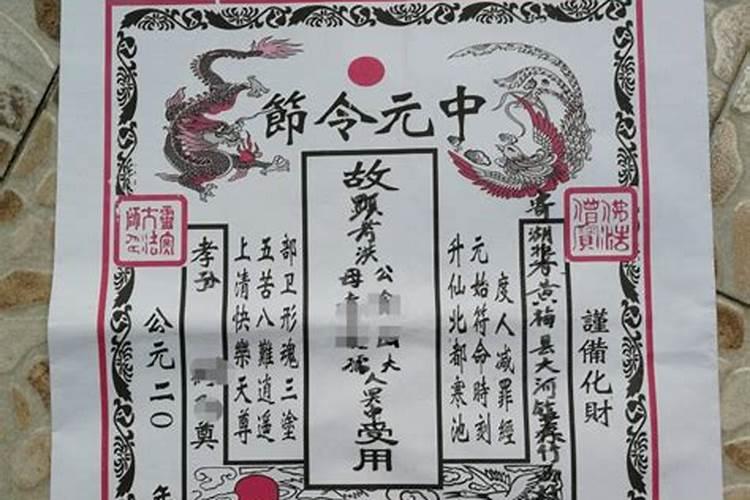 中元令節
佛法僧寶
謹備化財
寄湖北黄梅县大河镇
度人减罪經
元始符命時刻
升仙北都寒池
故
顯考洪公大人
母孺
受用
部卫形魂三塗
五苦八難逍遥
上清快樂天尊
孝孙 奠
靈寶大法師印
公元二〇 年